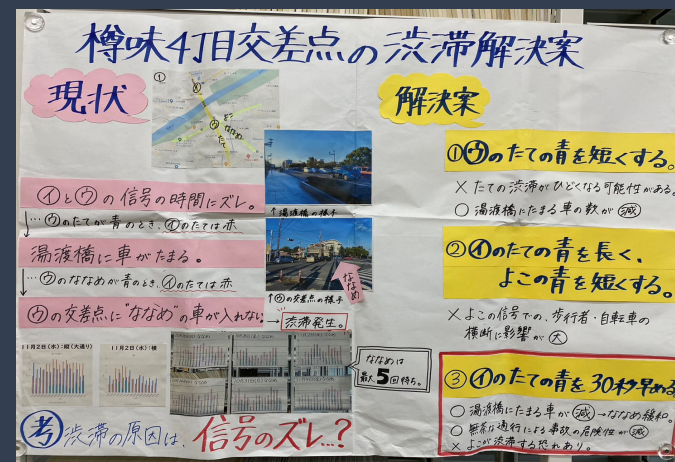 樽味4丁目交差点の渋滞解決案
現状
㋑と㋒の信号の時間にズレ。
…㋒のたてが青のとき、㋑のたては赤
湯渡橋に車がたまる。
…㋒のななめが青のとき、㋑のたては赤
㋒の交差点に"ななめ"の車が入れない
→渋滞発生。
↑湯渡橋の様子
↑㋒の交差点の様子
ななめ
11月2日(水):縦(大通り)
11月2日(水):横
ななめは
最大5回待ち。
考 渋滞の原因は、信号のズレ…?
解決案
①㋒のたての青を短くする。
×たての渋滞がひどくなる可能性がある。
○湯渡橋にたまる車の数が減
②㋑のたての青を長く、
よこの青を短くする。
×よこの信号での、歩行者・自転車の
横断に影響が大
③㋑のたての青を30秒早める
○湯渡橋にたまる車が減→ななめ緩和。
○無茶な通行による事故の危険性が減
×よこが渋滞する恐れあり。